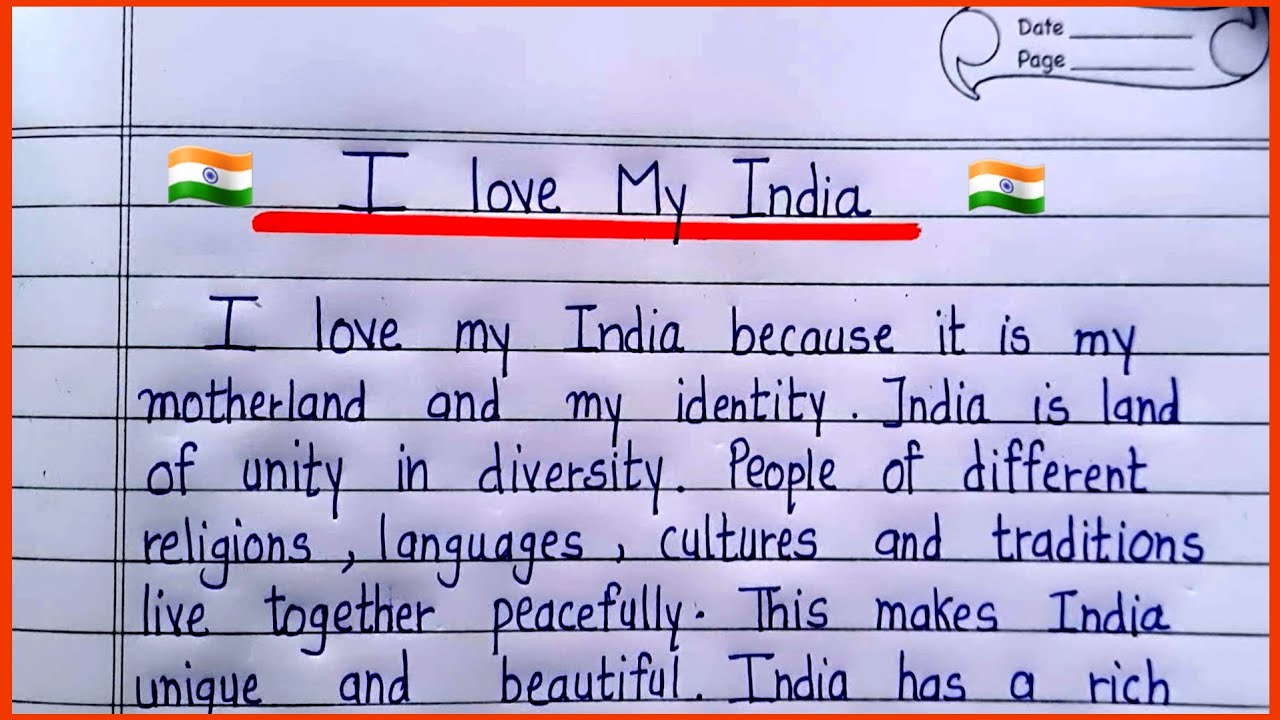 Date
Page
I love My India
I love my India because it is my
motherland and my identity. India is land
of unity in diversity. People of different
religions, languages, cultures and traditions
live together peacefully. This makes India
unique and beautiful. India has a rich